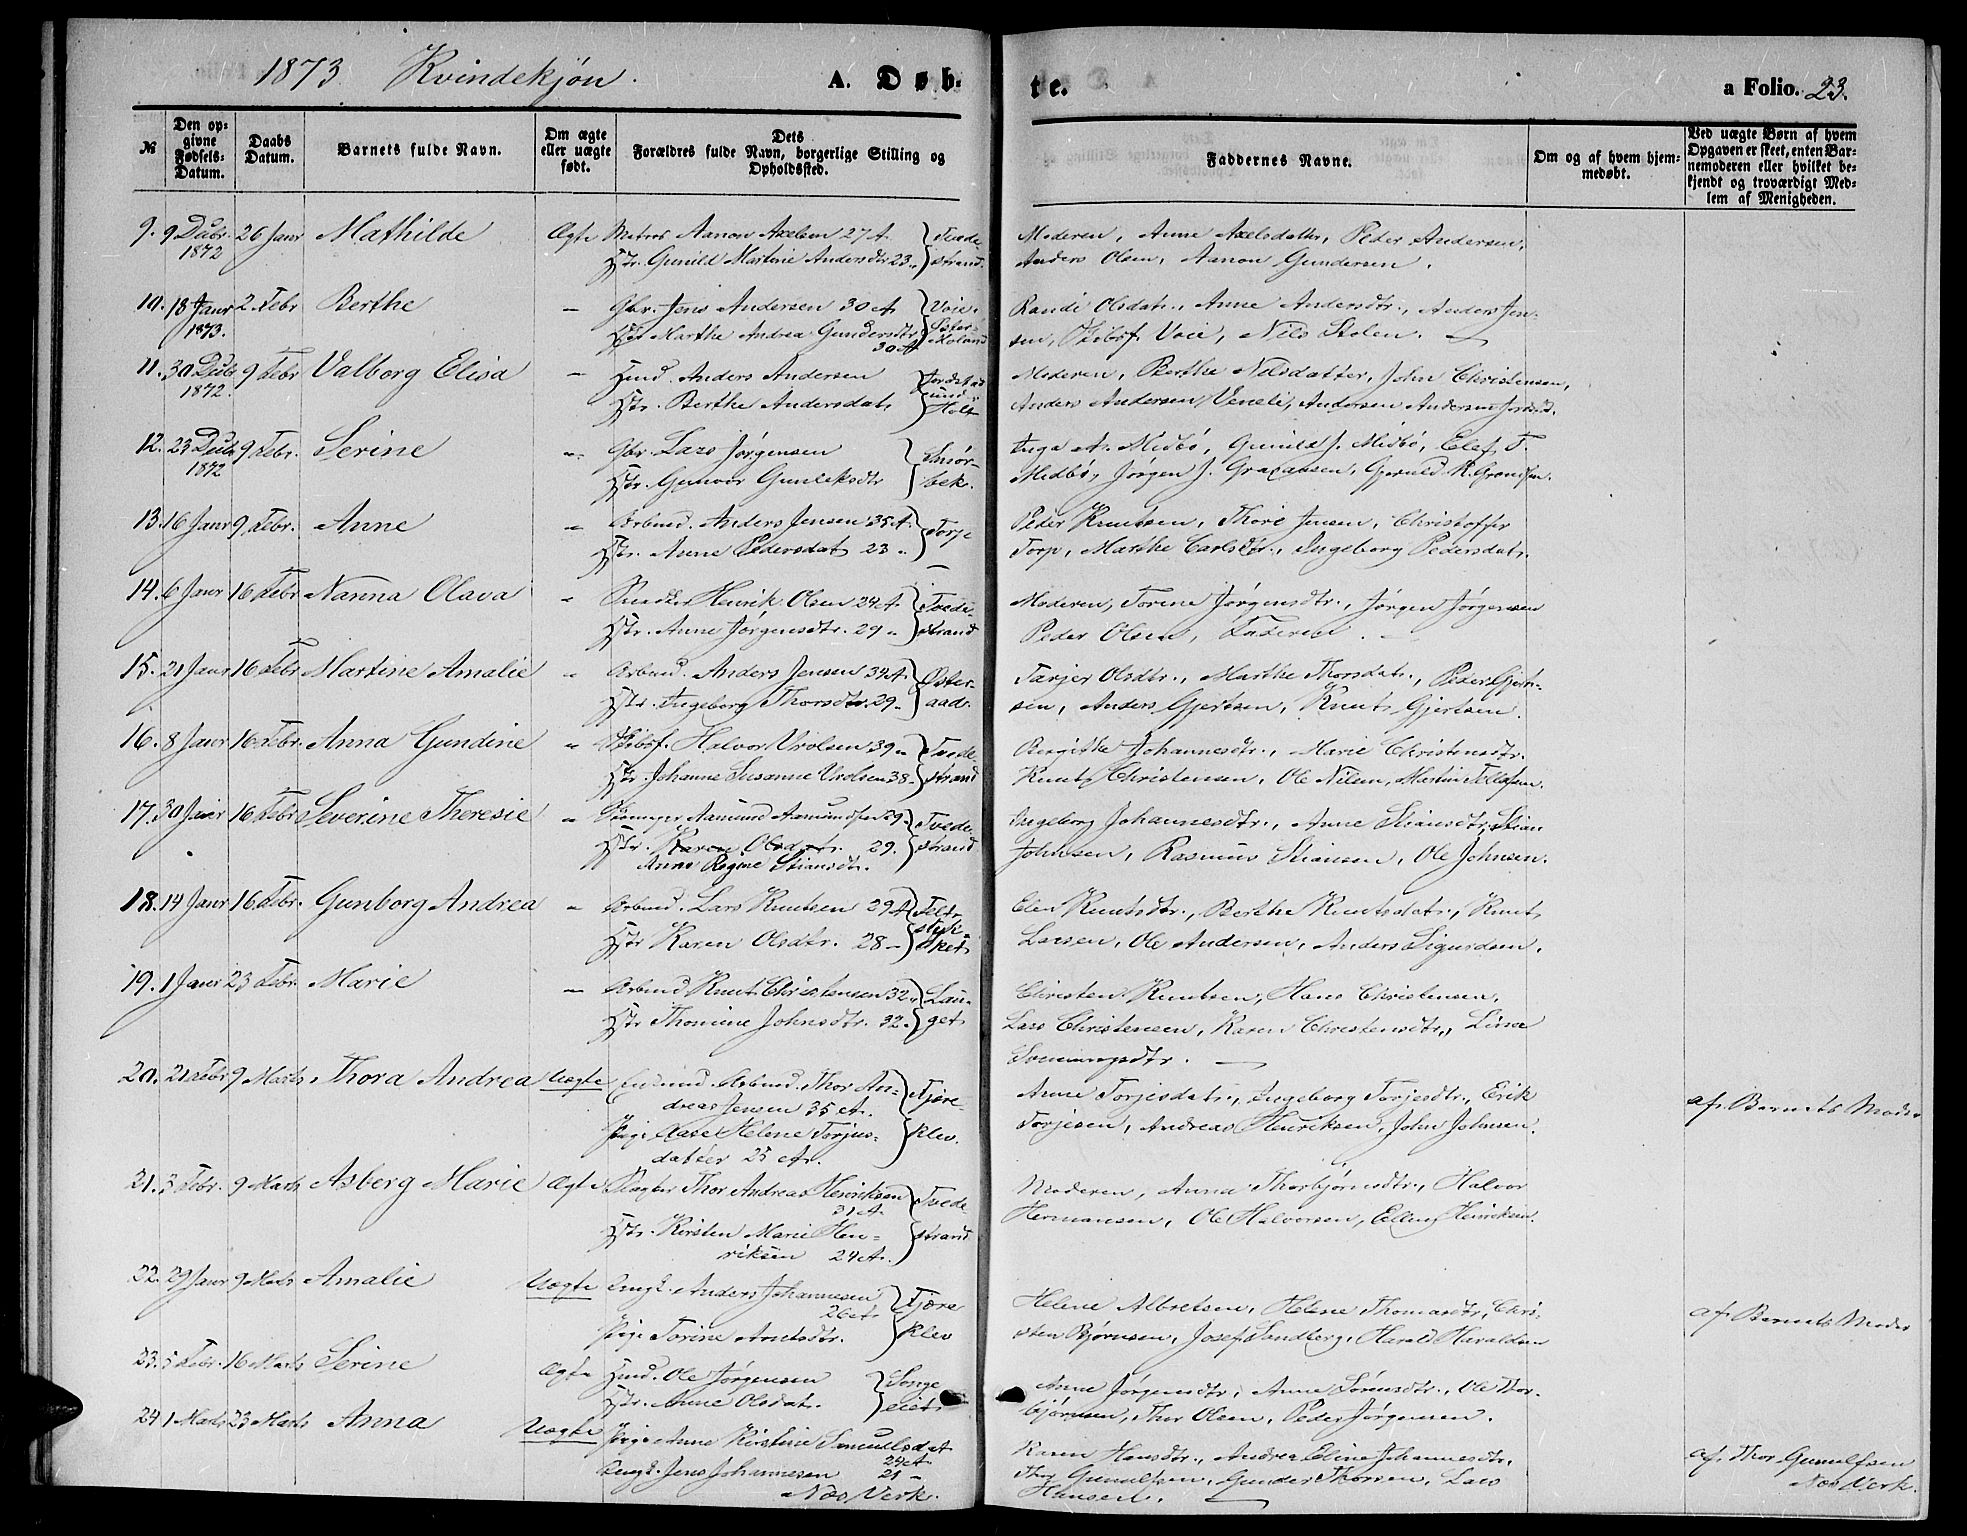 1873. Kvindekjøn.
A. Døb-
te.
a Folio. 23.
№
Den op-
givne
Fødsels-
Datum.
Daabs
Datum.
Barnets fulde Navn.
Om ægte
eller uægte
født.
Dets
Forældres fulde Navn, borgerlige Stilling og
Opholdssted.
Faddernes Navne.
Om og af hvem hjem-
medøbt.
Ved uægte Børn af hvem
Opgaven er skeet, enten Bar-
nemoderen eller hvilket be-
kjendt og troværdigt Med-
lem af Menigheden.
9. 9 Decbr. 26 Janr Mathilde Ægte Matros Aanon Axelsen 27 A. Tvede-
1872 Hstr. Gunild Martine Andersdtr 23 " strand.
Moderen, Anne Axelsdatter, Peder Andersen,
Anders Olsen, Aanon Gundersen.
10. 18 Janr 2 Febr Berthe " Gbr. Jens Andersen 30 A Voie.
1873. Hstr Marthe Andrea Gundersdtr Øster-
30 A Holand
Randi Olsdatr., Anne Andersdtr., Anders Jen-
sen, Voie, Nils Stolen.
11. 30 Decbr 9 Febr Valborg Elisa " Hmd. Anders Andersen
1872. Hstr. Berthe Andersdatr Holt
Moderen, Berthe Nilsdatter, John Christensen,
Anders Andersen Veneli, Andersen Andersen
12. 23 Decbr 9 Febr. Serine " Gbr. Lars Jørgensen Smør-
1872 Hstr. Gunvor Gunleksdtr bek.
Inga A. Midbø, Gunild J. Midbø, Elef T.
Midbø, Jørgen J.
13. 16 Janr 9 Febr. Anne " Arbmd. Anders Jensen 35 A. Torp
Hstr. Anne Pedersdatr 23 "
Peder Knutsen, Thore Jensen, Christoffer
Torp, Marthe Carlsdtr., Ingeborg Pedersdatr.
14. 6 Janr 16 Febr Nanna Olava " Snedker Henrik Olsen 24 A. Tvede-
Hstr. Anne Jørgensdtr. 29 " strand
Moderen, Torine Jørgensdtr., Jørgen Jørgensen
Peder Olsen, Faderen.
15. 21 Janr 16 Febr Martine Amalie " Arbmd. Anders Jensen 34 A. Øster-
Hstr. Ingeborg Thorsdtr. 29 " aadr.
Tarjer Olsdtr., Marthe Thorsdatr., Peder Gjert-
sen, Anders Gjertsen, Knut Gjertsen.
16. 8 Janr 16 Febr. Anna Gundine " Skibsf. Halvor Vrolsen 39 " Tvede
Hstr. Johanne Susanne Vrolsen 38 " strand
Bergithe Johannesdtr., Marie Christensdtr.
Knut Christensen, Ole Nilsen, Martin Tellefsen.
17. 30 Janr 16 Febr Severine Theresie " Aamund Aamundsen 29. Tvede
Hstr. Karen Olsdatr. 29. strand
Anne Regine Stiansdtr.
Ingeborg Johannesdtr., Anne Stiansdtr, Stian
Johnsen, Rasmus Stiansen, Ole Johnsen.
18. 14 Janr 16 Febr. Gunborg Andrea " Arbmd. Lars Knutsen 29 A Felt-
styk-
Hstr Karen Olsdtr. 28 " ket
Elen Knutsdtr., Berthe Knutsdatr., Knut
Larsen, Ole Andersen, Anders Sigurdsen.
19. 1 Janr 23 Febr. Marie " Arbmd Knut Christensen 32 " Lau-
Hstr Thomine Johnsdtr. 32 " get
Christen Knutsen, Hans Christensen,
Lars Christensen, Karen Christensdtr., Lina
Svenningsdtr.
20. 21 Febr 9 Marts Thora Andrea Uægte Enkmd. Arbmd. Thor An- Tjøre-
dreas Jensen 35 A.
Pige Aase Helene Torjus- klev.
datter 25 A.
Anne Torjesdatr., Ingeborg Torjesdtr., Erik
Torjesen, Andreas Henriksen, John Johnsen.
af Barnets Moder
21. 3 Febr. 9 Marts Asberg Marie Ægte Slagter Thor Andreas Henriksen Tvede
31 A.
Hstr. Kirsten Marie Hen- strand
riksen 24 A.
Moderen, Anna Thorbjørnsdtr., Halvor
Hermansen, Ole Halvorsen, Ellen Henriksen.
22. 29 Janr 9 Marts Amalie Uægte Ungk. Anders Johannesen Tjøre
26 A
Pige Torine Anetsdtr. klev
Helene Albretsen, Helene Thomasdtr, Chri-
sten Bjørnsen, Josef Sandberg, Harald Haraldsen
af Barnets Moder
23. 5 Febr. 16 Marts Serine Ægte Hmd. Ole Jørgensen Songe
Hstr. Anne Olsdatr. eiet
Anne Jørgensdtr, Anne Sørensdtr., Ole Thor-
bjørnsen, Thor Olsen, Peder Jørgensen.
24. 1 Marts 23 Marts Anna Uægte Pige Anne Kirstine Samuelsdat
24 A
Ungk. Jens Johannesen 21 "
Næs Verk.
Karen Hansdtr., Andrea Eline Johannesdtr,
Thor Gunulfsen, Gunder Thorsen, Lars
Hansen.
af Thor Gunulfsen
Næs Verk.